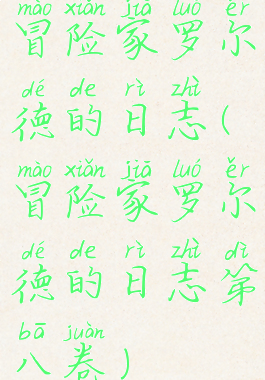 mào xiǎn jiā luó ěr
冒险家罗尔
dé de rì zhì
德的日志(
mào xiǎn jiā luó ěr
冒险家罗尔
dé de rì zhì dì
德的日志第
bā juàn
八卷)